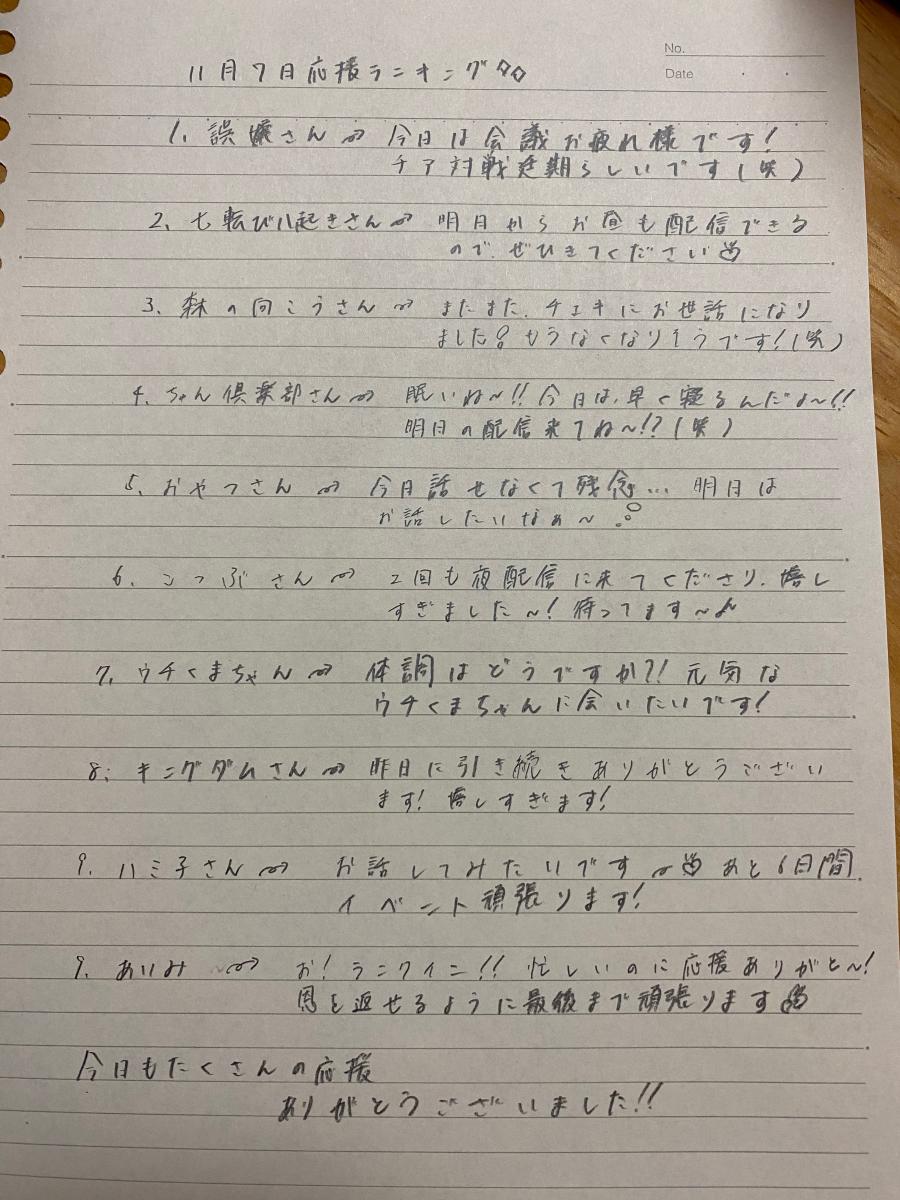 No.
Date
11月7日応援ランキング
1. 誤爆さん→ 今日は会議お疲れ様です!
チア対戦延期らしいです(笑)
2. 七転び八起きさん→ 明日からお昼も配信できる
ので、ぜひきてください
3. 森の向こうさん→ またまた、チェキにお世話になり
ました! もうなくなりそうです!(笑)
4. ちゃん倶楽部さん→ 眠いね〜!! 今日は、早く寝るんだよ〜!!
明日の配信来てね〜!?(笑)
5. おやつさん→ 今日話せなくて残念... 明日は
お話したいなぁ〜
6. こつぶさん→ 2回も夜配信に来てくださり、嬉し
すぎました〜! 待ってます〜♪
7. ウチくまちゃん→ 体調はどうですか?! 元気な
ウチくまちゃんに会いたいです!
8. キングダムさん→ 昨日に引き続きありがとうござい
ます! 嬉しすぎます!
9. ハミ子さん→ お話してみたいです〜 あと6日間
イベント頑張ります!
9. あいみ→ お! ランクイン!! 忙しいのに応援ありがと〜!
恩を返せるように最後まで頑張ります
今日もたくさんの応援
ありがとうございました!!